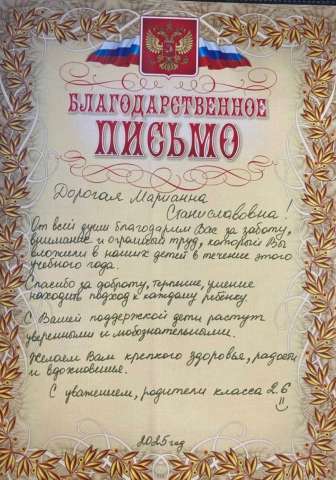 БЛАГОДАРСТВЕННОЕ
ПИСЬМО
Дорогая Марианна
Станиславовна!
От всей души благодарим Вас за заботу,
внимание и огромный труд, который Вы
вложили в наших детей в течение этого
учебного года.
Спасибо за доброту, терпение, умение
находить подход к каждому ребёнку.
С Вашей поддержкой дети растут
уверенными и любознательными.
Желаем Вам крепкого здоровья, радости
и вдохновения.
С уважением, родители класса 2.6
2025 год